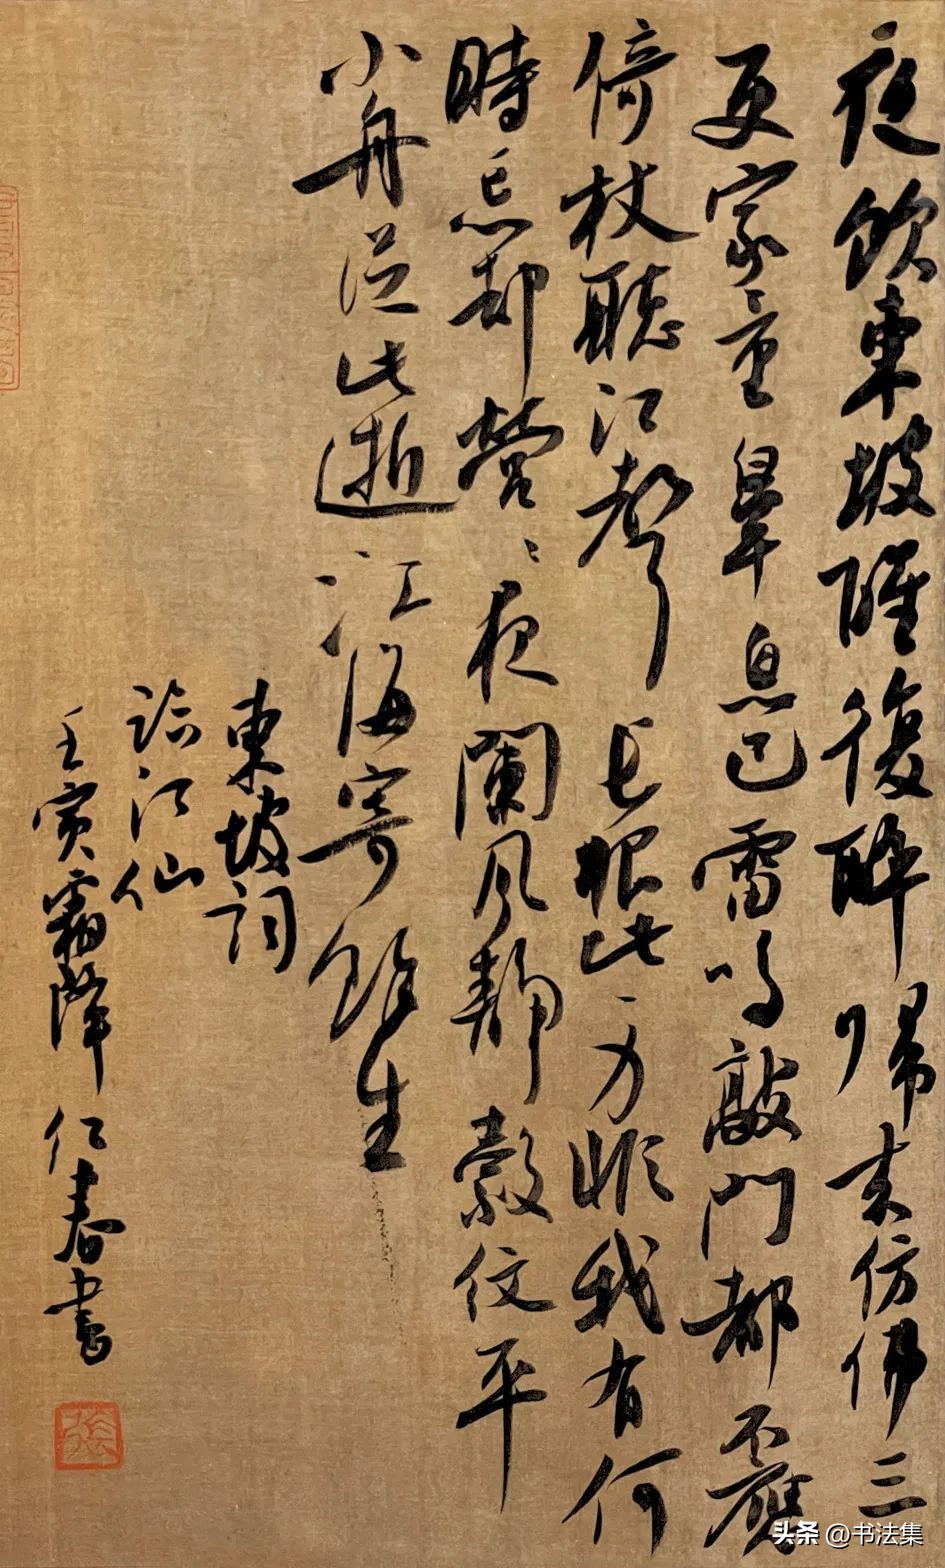 夜飲東坡醒復醉歸来仿佛三
更家童鼻息已雷鳴敲門都不應
倚杖聽江聲長恨此身非我有何
時忘却營〻夜闌風靜縠紋平
小舟從此逝江海寄餘生
東坡詞
臨江仙
壬寅霜降仁春書
头条 @书法集